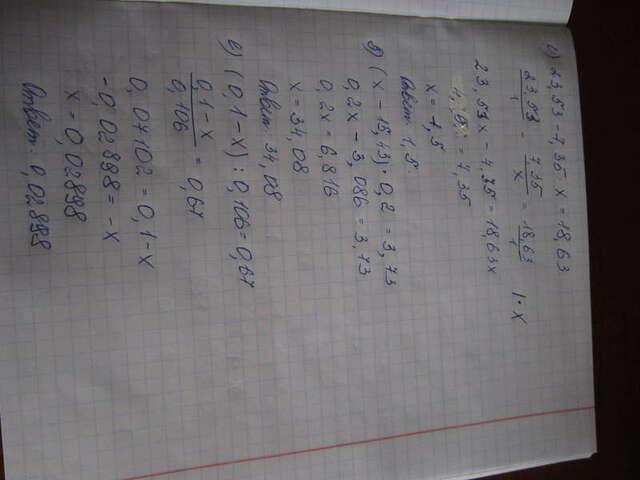 23,53 - 7,35 : x = 18,63
23,53/1 - 7,35/x = 18,63/1 | · x
23,53x - 7,35 = 18,63x
4,9x = 7,35
x = 1,5
Ответ: 1,5
д) (x - 15,43) · 0,2 = 3,73
0,2x - 3,086 = 3,73
0,2x = 6,816
x = 34,08
Ответ: 34,08
е) (0,1 - x) : 0,106 = 0,67
0,1 - x/0,106 = 0,67
0,07102 = 0,1 - x
-0,02898 = -x
x = 0,02898
Ответ: 0,02898